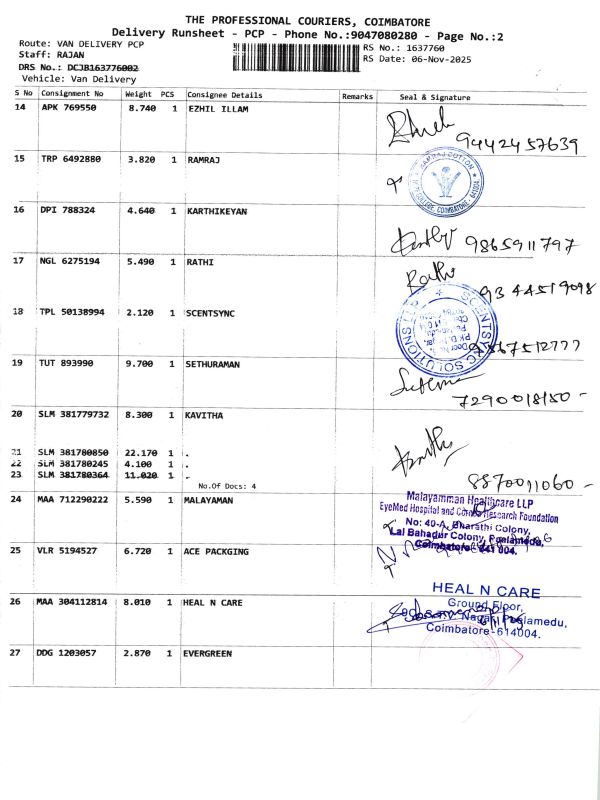 THE PROFESSIONAL COURIERS, COIMBATORE
Delivery Runsheet - PCP - Phone No.:9047080280 - Page No.:2
Route: VAN DELIVERY PCP
Staff: RAJAN
DRS No.: DCJB163776002
Vehicle: Van Delivery
RS No.: 1637760
RS Date: 06-Nov-2025
S No Consignment No Weight PCS Consignee Details Remarks Seal & Signature
14 APK 769550 8.740 1 EZHIL ILLAM
9442457639
15 TRP 6492880 3.820 1 RAMRAJ
RAMRAJ COTTON
COIMBATORE
16 DPI 788324 4.640 1 KARTHIKEYAN
9865911797
17 NGL 6275194 5.490 1 RATHI
Rathi
9344519098
18 TPL 50138994 2.120 1 SCENTSYNC
SCENTSYNC SOLUTIONS LLP
19 TUT 893990 9.700 1 SETHURAMAN
7290018150 -
20 SLM 381779732 8.300 1 KAVITHA
21 SLM 381780850 22.170 1 .
22 SLM 381780245 4.100 1 .
23 SLM 381780364 11.020 1 .
No.Of Docs: 4
8870011060 -
24 MAA 712290222 5.590 1 MALAYAMAN
Malayamman Healthcare LLP
EyeMed Hospital and Research Foundation
No: 40-A, Bharathi Colony,
Lal Bahadur Colony, Peelamedu,
Coimbatore - 641 004.
25 VLR 5194527 6.720 1 ACE PACKGING
26 MAA 304112814 8.010 1 HEAL N CARE
HEAL N CARE
Ground Floor,
Nagar, Peelamedu,
Coimbatore-614004.
27 DDG 1203057 2.870 1 EVERGREEN